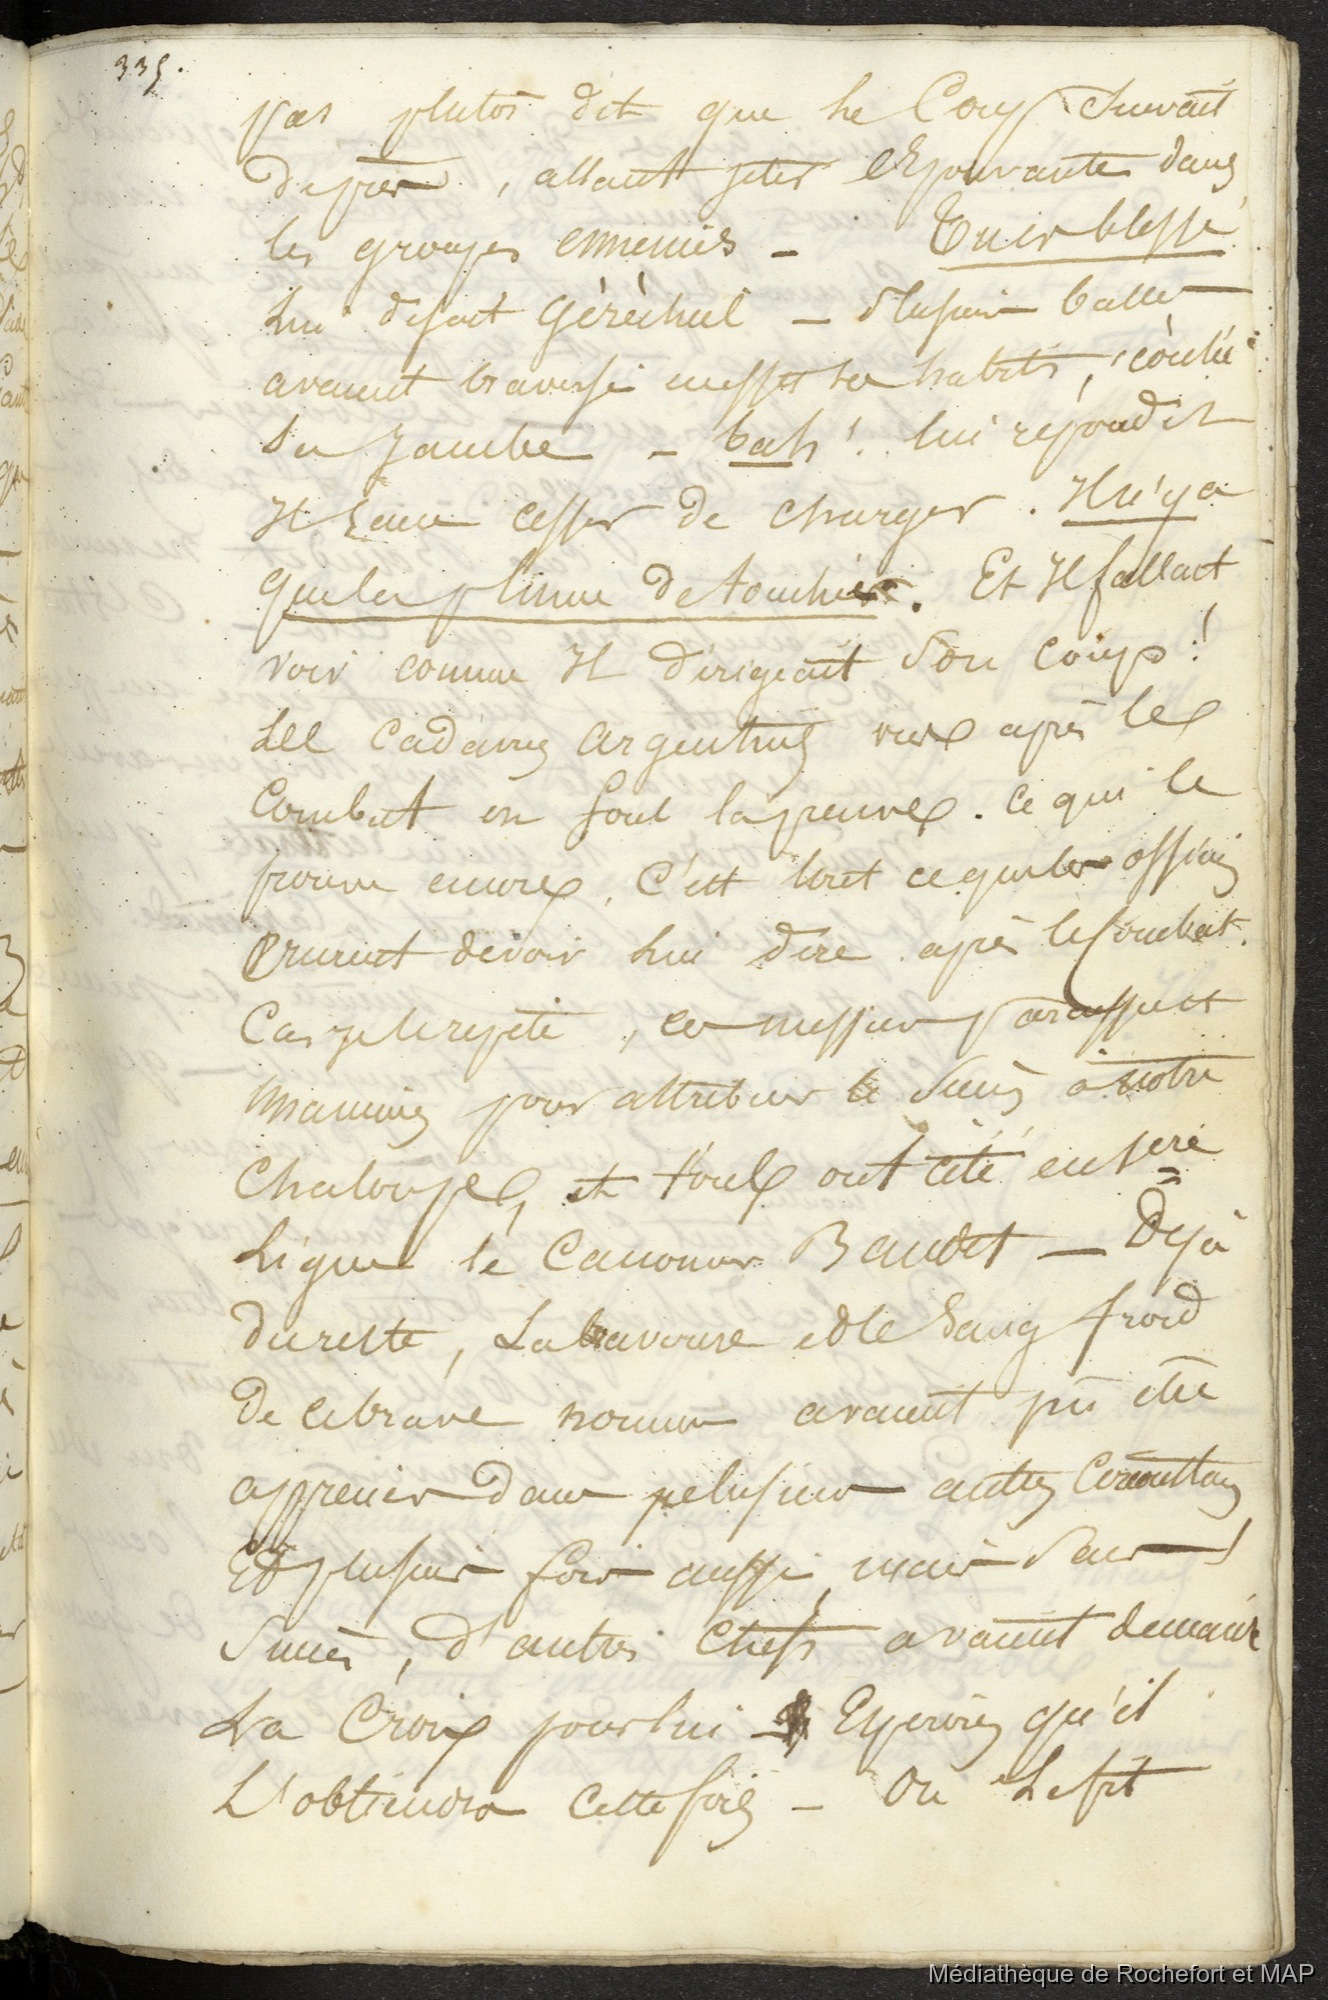 335.
pas plutôt dit que le Coup suivait
de près, allant jeter l'Epouvante dans
les groupes ennemis - Tu es blessé
lui disait Géréchul - Plusieurs balles
avaient traversé en effet ses habits,
sa Jambe - bah! lui répondit
Il sans cesser de charger. Il n'y a
que les plumes de touchées. Et Il fallait
voir comme Il dirigeait son coup!
Les Cadavres argentins vus après le
Combat en font la preuve. Ce qui le
prouve encore, C'est tout ce que les officiers
Crurent devoir lui dire après le Combat.
Car je le répète, ces messieurs
pour attribuer le Succès à notre
Chaloupe, et tous ont cité en 1ere
Ligne le Canonier Baudet - Déjà
du reste, La bravoure et le Sang froid
de ce brave homme avaient pu être
appreciés dans plusieurs autres Circonstances
Et plusieurs fois aussi, mais sans
Succès, d'autres Chefs avaient demandé
La Croix pour lui - Esperons qu'il
L'obtiendra cette fois - On le fit
Médiathèque de Rochefort et MAP